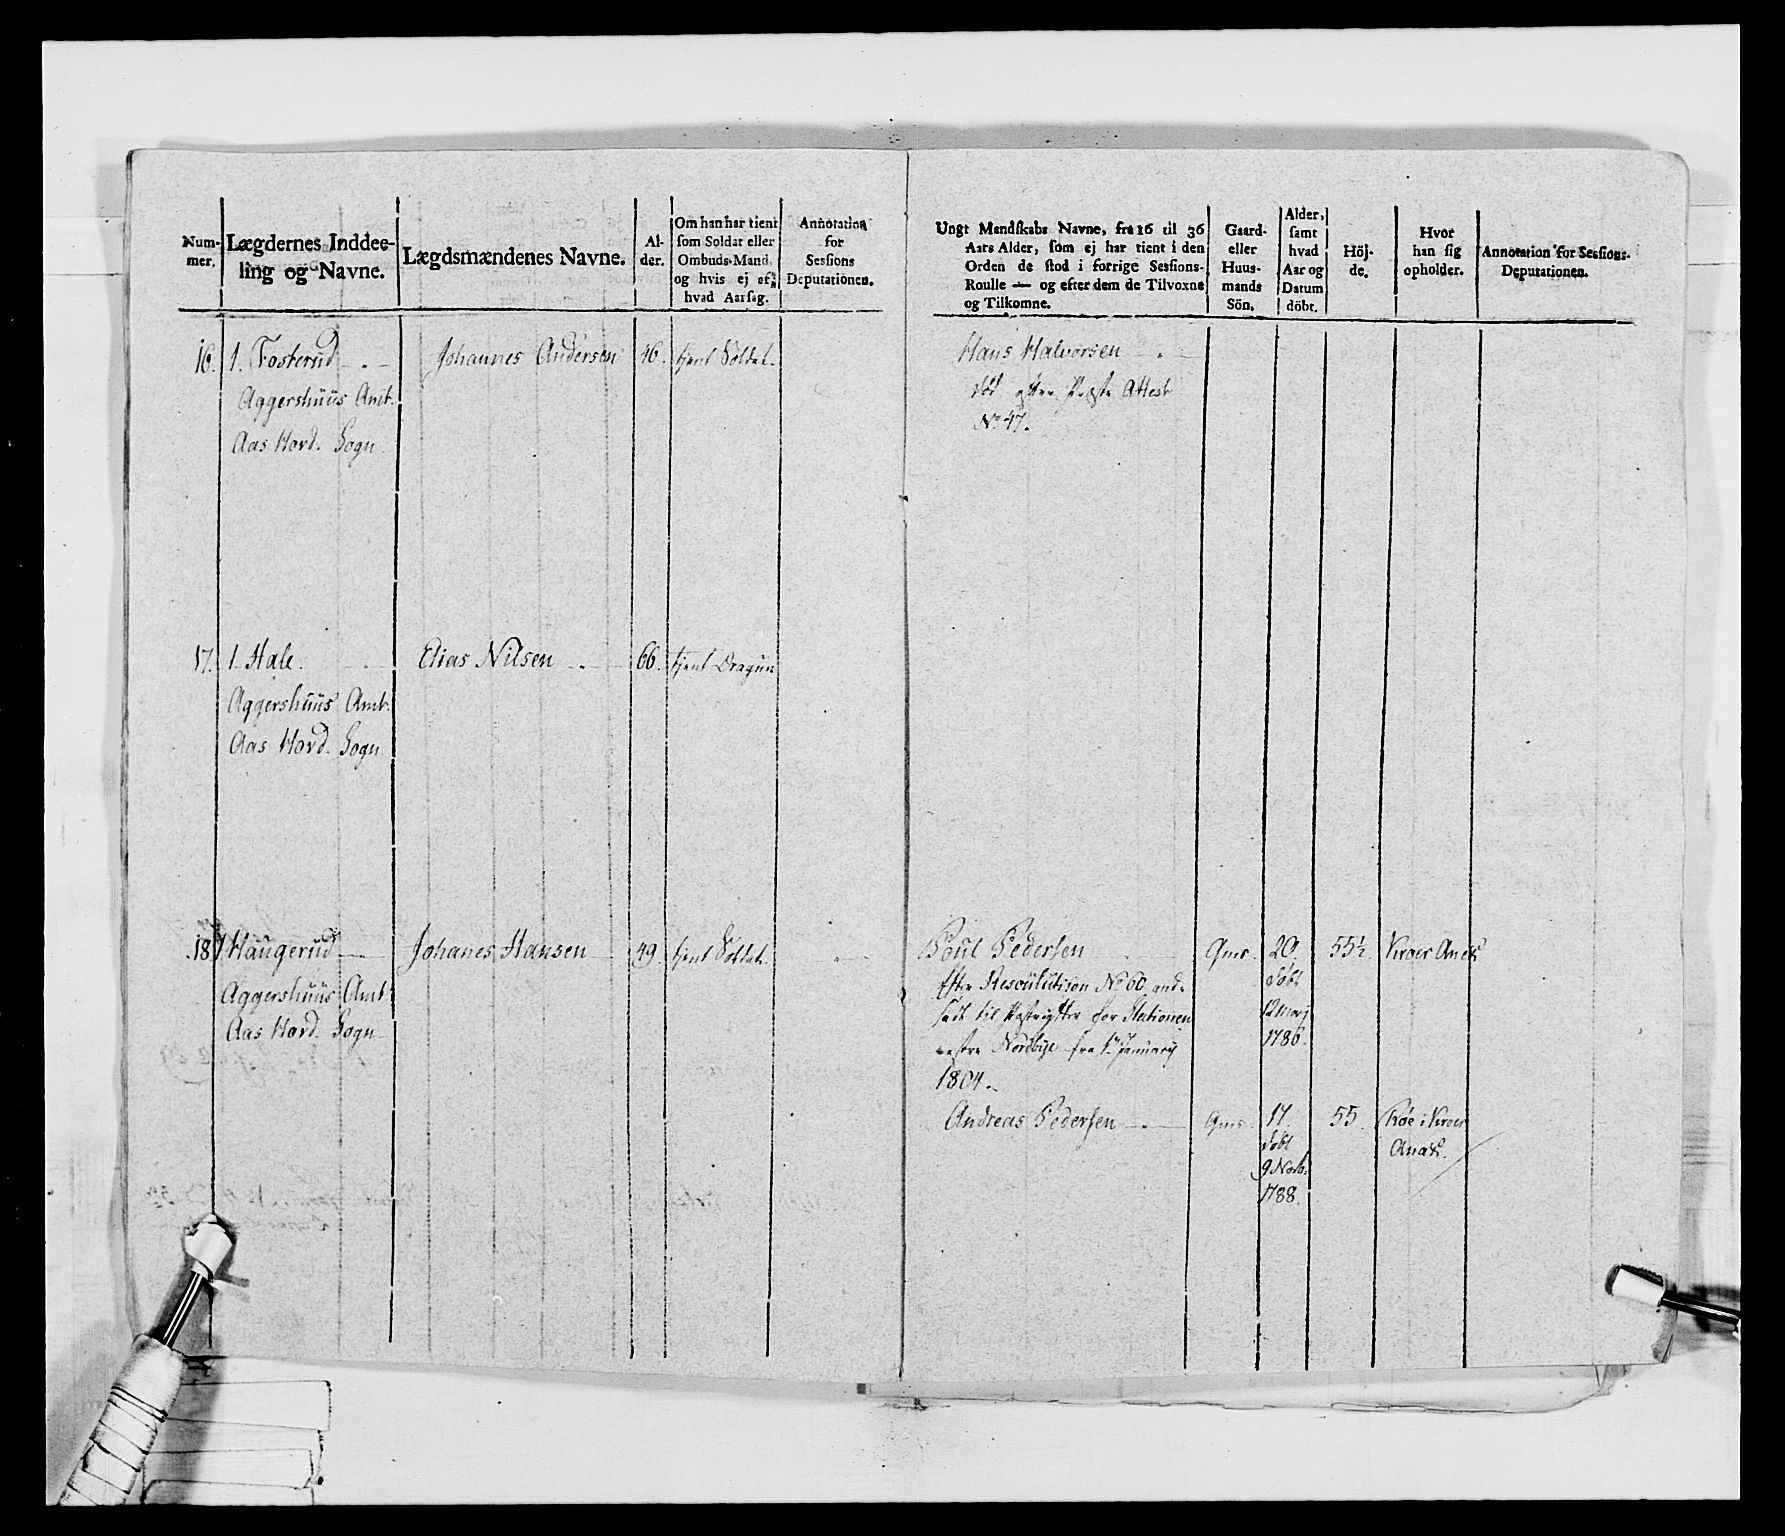 Num-
mer.
Lægdernes Inddee-
ling og Navne.
Lægdsmændenes Navne.
Al-
der.
Om han har tient
som Soldat eller
Ombuds-Mand,
og hvis ej af
hvad Aarsag.
Annotation
for
Sessions
Deputationen.
Ungt Mandskabs Navne, fra 16 til 36
Aars Alder, som ej har tient i den
Orden de stod i forrige Sessions-
Roulle — og efter dem de Tilvoxne
og Tilkomne.
Gaard-
eller
Huus-
mands
Sön.
Alder,
samt
hvad
Aar og
Datum
döbt.
Höj-
de.
Hvor
han sig
opholder.
Annotation for Sessions-
Deputationen.
16. 1. Fosterud Johannes Andersen 46. tjent Soldat. Hans Halvorsen
Aggershuus Amt. død efter Præste Attest
Aas Hovd. Sogn No 47.
17. 1. Hale. Elias Nilsen 66. tjent Dragun
Aggershuus Amt.
Aas Hovd. Sogn
18 1 Haugerud Johanes Hansen 49. tjent Soldat. Poul Pedersen Gms. 20. 55½ Kroer Anex
Aggershuus Amt Efter Resoulution No 60 and- døbt
Aas Hovd. Sogn sadt til for Stationen 12 Marj
Nordbye fra 1te Januarij 1786.
1804.
Andreas Pedersen Gms. 17. 55. i Kroer
døbt Anex.
9 Novb.
1788.